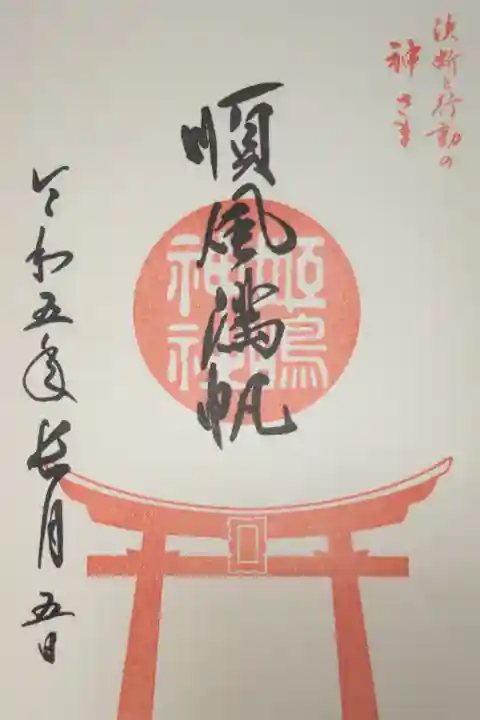 決断と行動の
神さま
順風満帆
姫嶋
神社
令和五年長月五日